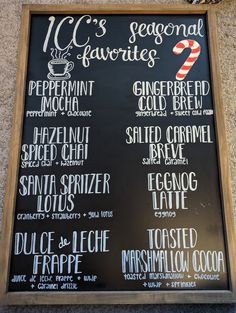 ICC's seasonal
favorites
PEPPERMINT
MOCHA
peppermint + chocolate
GINGERBREAD
COLD BREW
gingerbread + sweet cold foam
HAZELNUT
SPICED CHAI
chai + hazelnut
SALTED CARAMEL
BREVE
salted caramel
SANTA SPRITZER
LOTUS
cranberry + strawberry + gold lotus
EGGNOG
LATTE
eggnog
DULCE de LECHE
FRAPPE
dulce de leche frappe + whip
+ caramel drizzle
TOASTED
MARSHMALLOW COCOA
toasted marshmallow + chocolate
+ whip + sprinkles